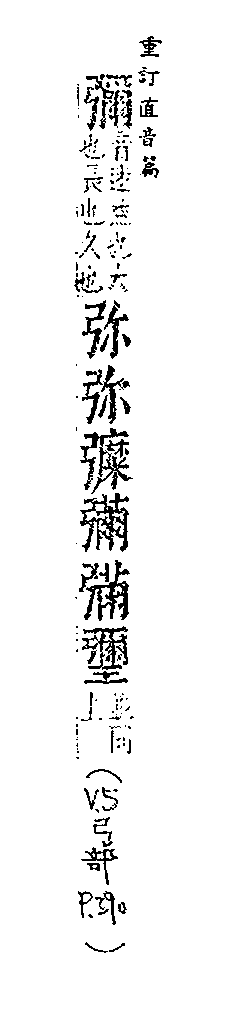 重訂直音篇
彌音迷益也大也長也久也弥弥𢐡彌彌壐並同上
(V.5弓部P.390)